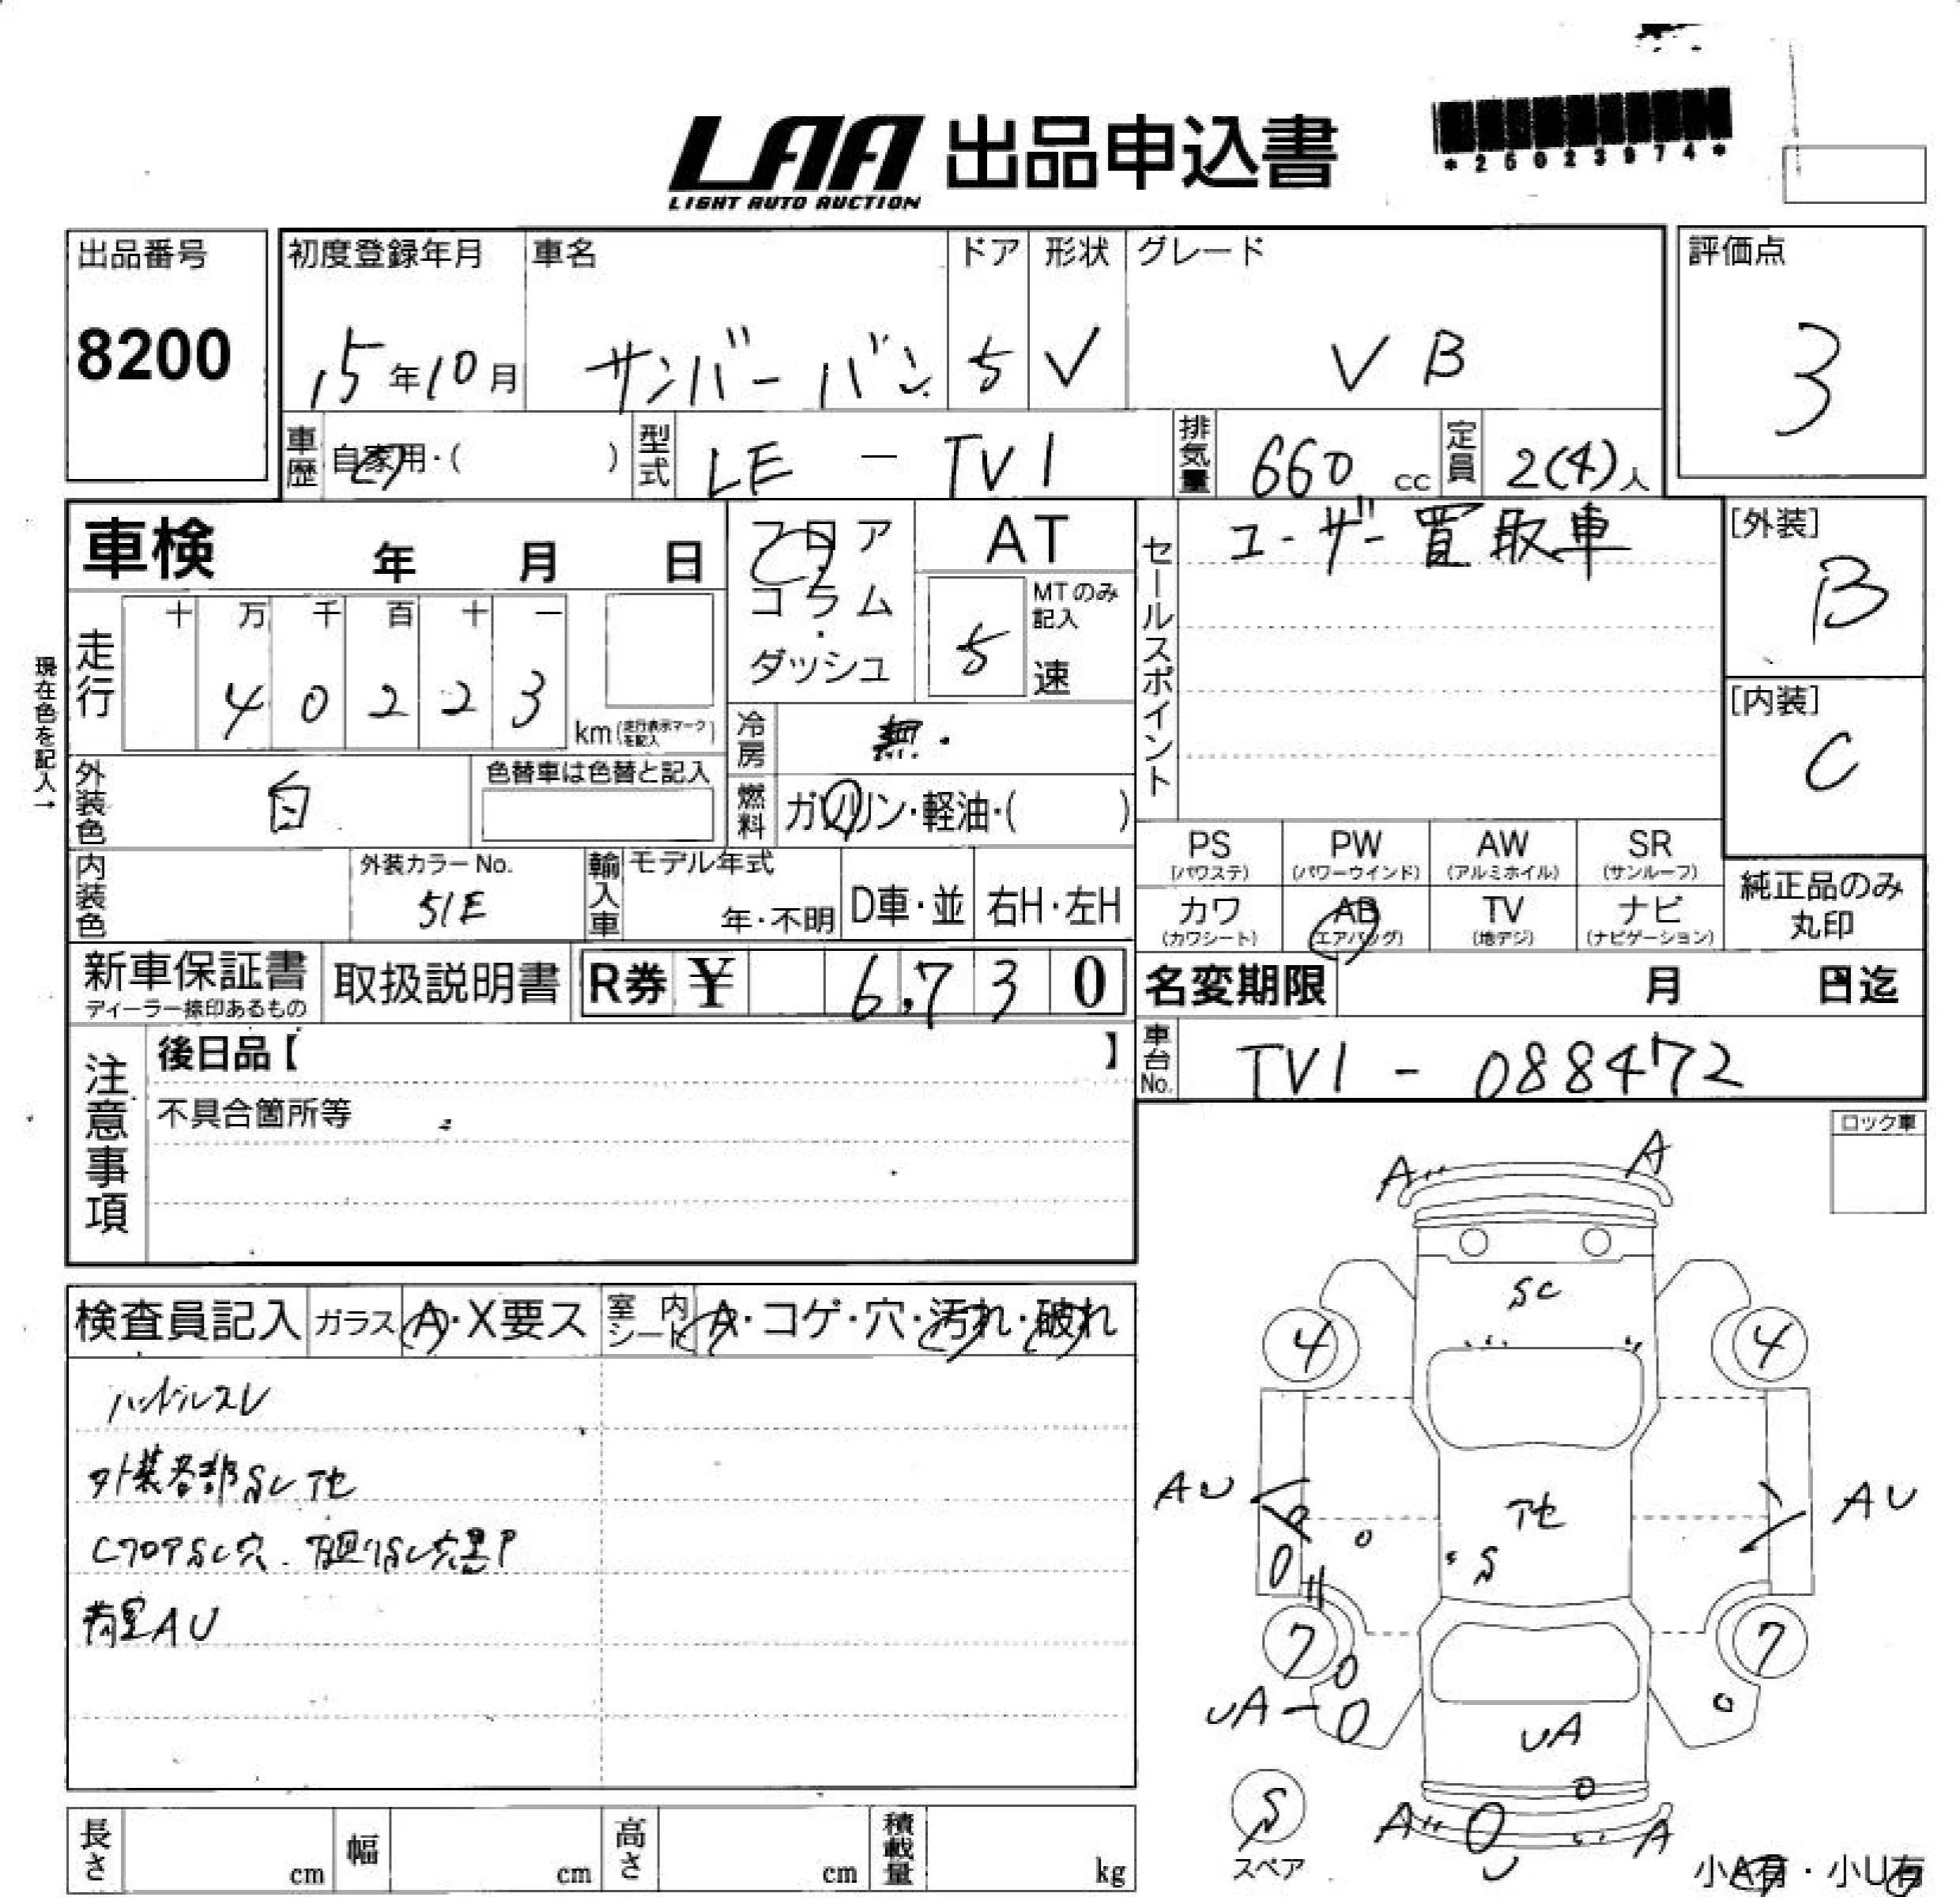 LAA 出品申込書
LIGHT AUTO AUCTION
*25023974*
出品番号
8200
初度登録年月 車名 ドア 形状 グレード
15年10月 サンバーバン 5 V VB
評価点
3
車歴 自家用・( ) 型式 LE - TV1 排気量 660 cc 定員 2(4)人
車検 年 月 日
フロア
コラム
・
ダッシュ
AT
MTのみ記入
5 速
セールスポイント
ユーザー買取車
[外装]
B
[内装]
C
現在色を記入→
走行 十 万 千 百 十 一
4 0 2 2 3
km(走行表示マークを記入)
冷房 無・
燃料 ガソリン・軽油・( )
外装色 白 色替車は色替と記入
内装色 外装カラーNo. 51E
輸入車 モデル年式 年・不明 D車・並 右H・左H
PS (パワステ) PW (パワーウインド) AW (アルミホイル) SR (サンルーフ)
カワ (カワシート) AB (エアバッグ) TV (地デジ) ナビ (ナビゲーション)
純正品のみ
丸印
新車保証書 ディーラー捺印あるもの 取扱説明書 R券 ¥ 6,730
名変期限 月 日迄
車台No. TV1 - 088472
注意事項
後日品【 】
不具合箇所等
ロック車
検査員記入 ガラス A・X要ス 室内シート A・コゲ・穴・汚れ・破れ
ハンドルスレ
外装各部SCアセ
CフロアSC穴 下回りSC穴黒P
荷室AU
A A
SC
4 4
AU アセ AU
S
7 7
UA UA
S
スペア
A A
U
小A有・小U有
長さ cm 幅 cm 高さ cm 積載量 kg